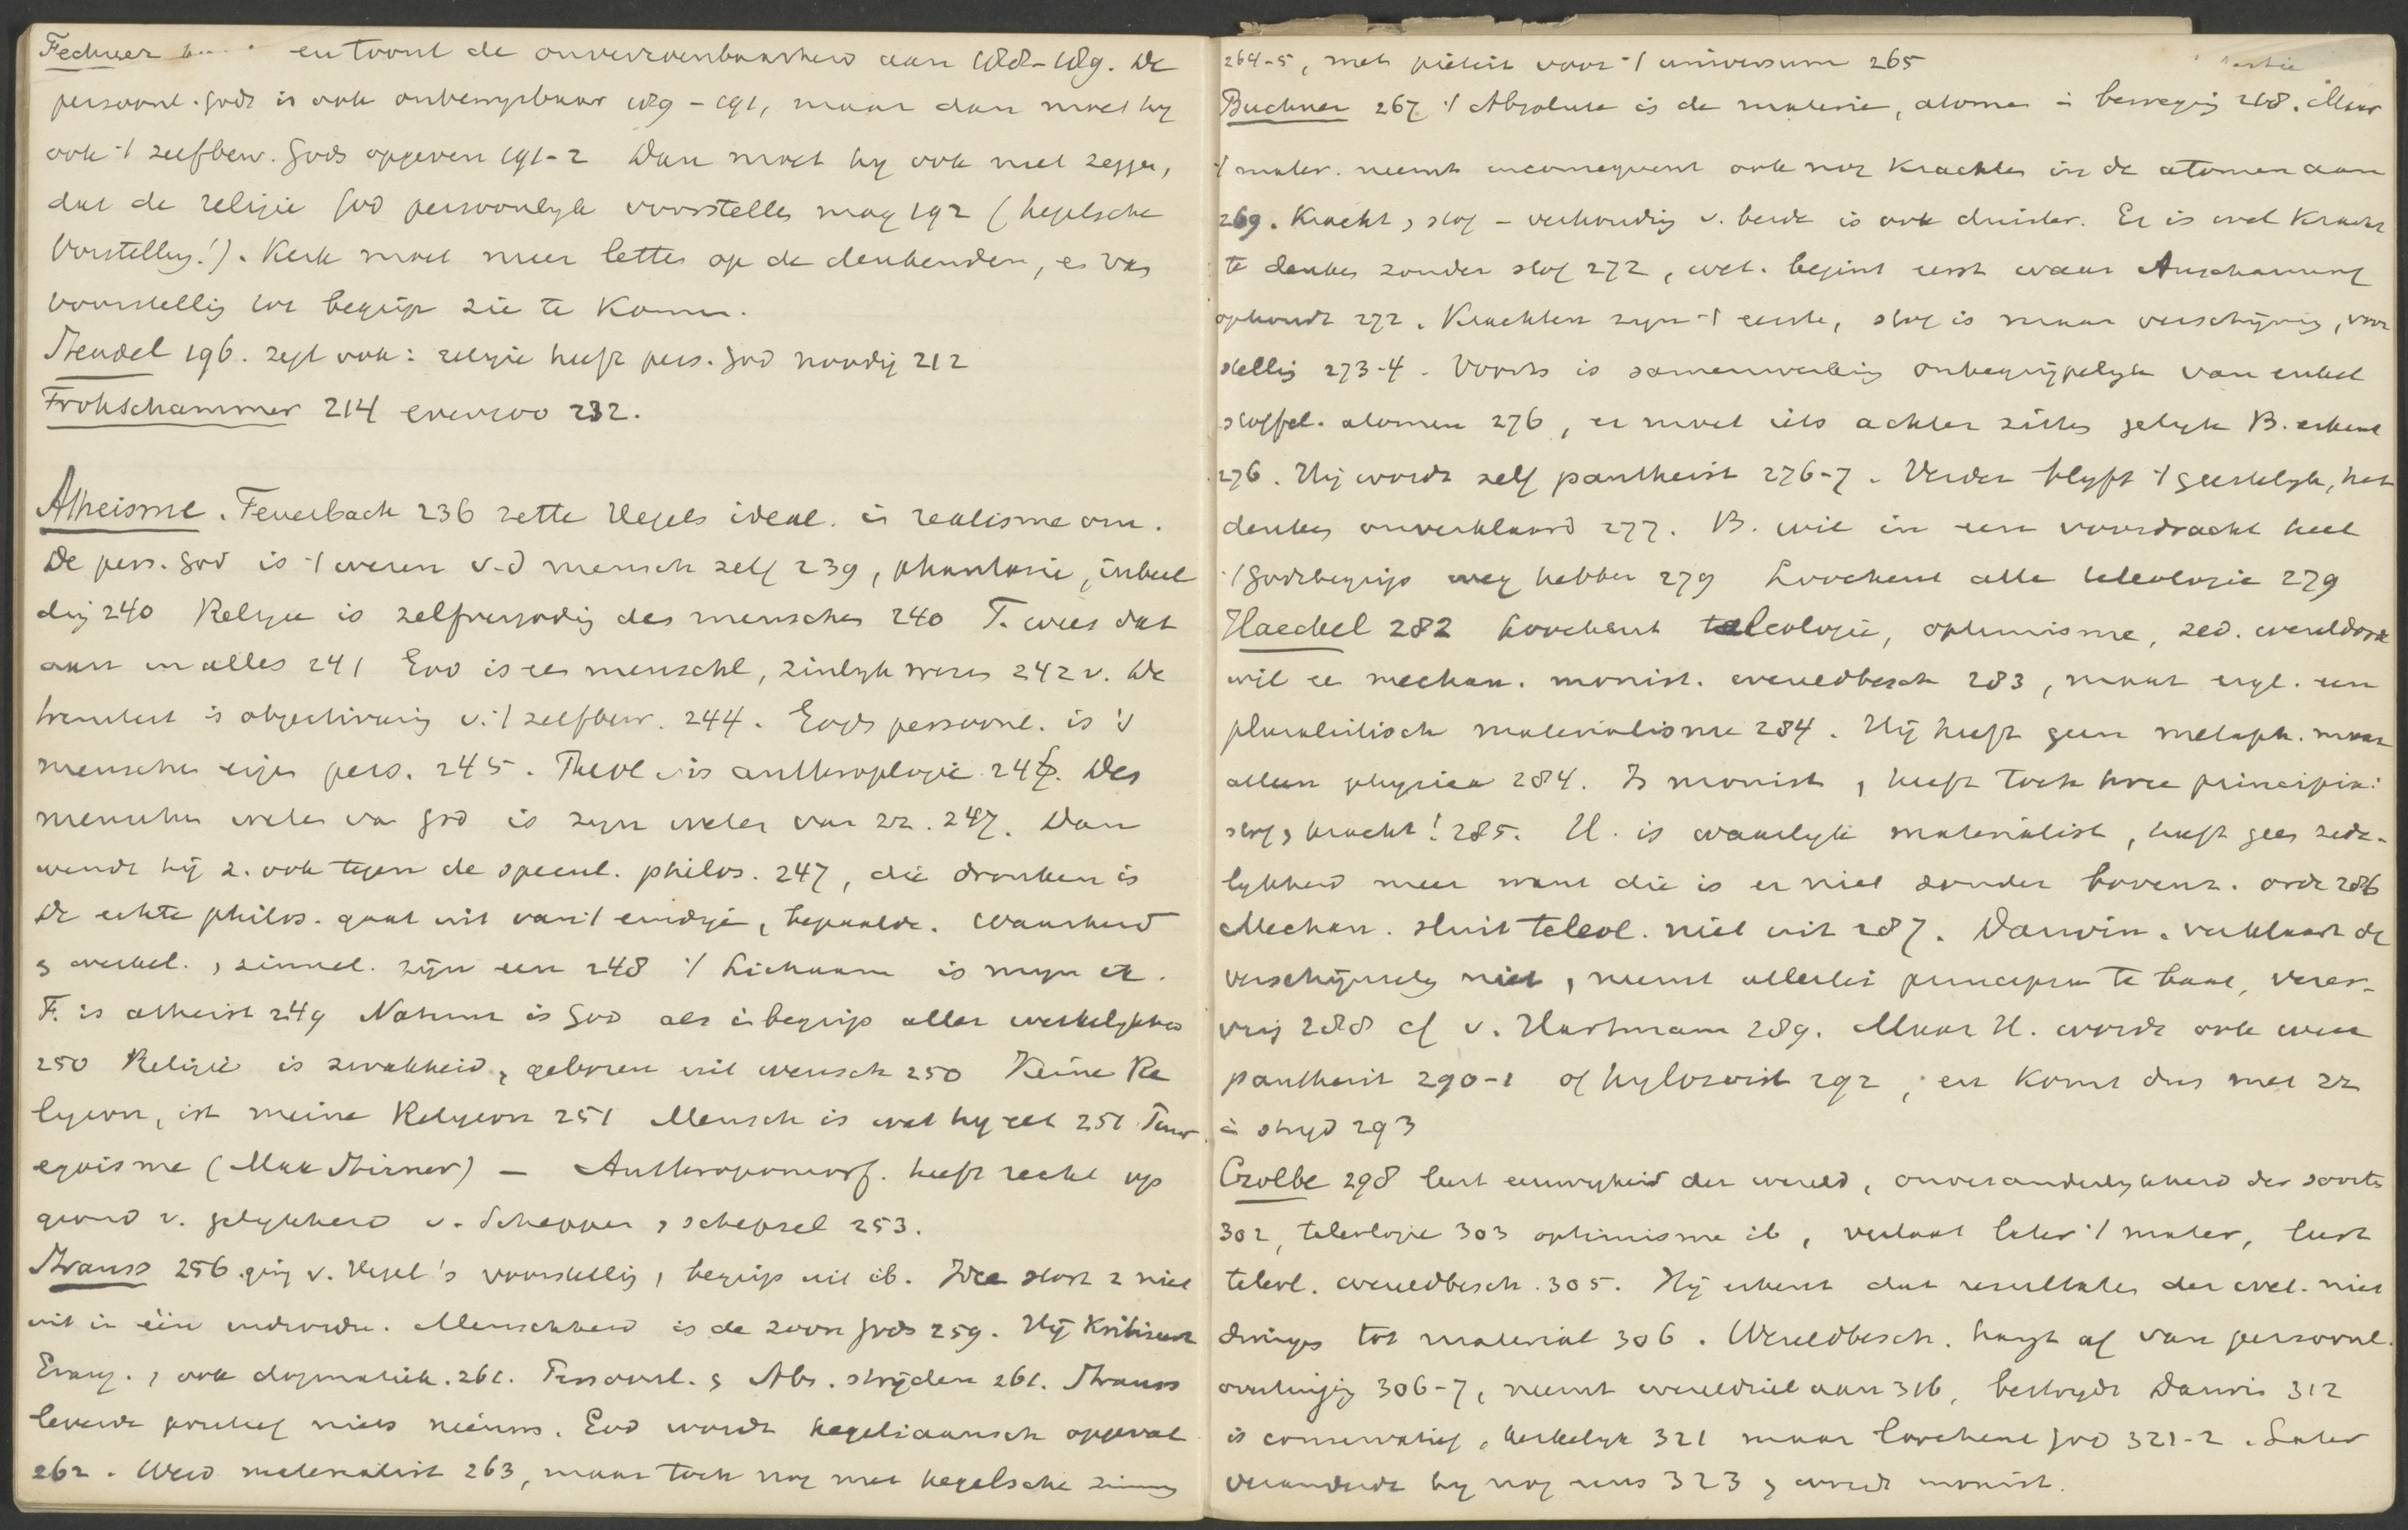 Fechner en toont de onvereenbaarheid aan 188-189. De
persoonl. Gods is ook onbewysbaar 189 - 191, maar dan moet hy
ook 't zelfbew. Gods opgeven 191-2 Dan moet hy ook niet zeggen,
dat de religie God persoonlyk voorstellen mag 192 (hegelsche
Vorstellung!). Kerk moet meer letten op de denkenden, en van
voorstellig tot begrip zie te komen.
Steudel 196. zegt ook: religie heeft pers. God noodig 212
Frohschammer 214 evenzoo 232.
Atheisme. Feuerbach 236 zette Hegels ideal. in realisme om.
De pers. God is 't wezen v.d mensch zelf 239, phantasie, inbeel
dig 240 Religie is zelfvergodig des menschen 240 F. wees dat
aan in alles 241 God is een menschl, zinlyk wezen 242 v. De
triniteit is objectivering v. 't zelfbew. 244. Gods persoonl. is 's
menschen eigen pers. 245. Theol is anthroplogie 246. Des
menschen weten van God is zyn weten van zz. 247. Dan
wendt hij z. ook tegen de specul. philos. 247, die dronken is
De echte philos. gaat uit van 't eindige, bepaalde. Waarheid
, werkel. , zinnel. zijn een 248 't Lichaam is myn ik.
F. is atheist 249 Natuur is God als inbegrip aller werkelykheid
250 Religie is zwakheid, geboren uit wensch 250 Keine Re
ligion, ist meine Religion 251 Mensch is wat hy eet 251
egoisme (Max Stirner) — Anthropomorf. heeft recht op
grond v. gelykheid v. Schepper , schepsel 253.
Strauss 256 ging v. Hegel's voorstellig , begrip uit ib. Idee stort z niet
uit in één individu. Menschheid is de zoon Gods 259. Hij kritiseert
Evang. , ook dogmatiek. 261. Persoonl. , Abs. strijden 261. Strauss
leverde positief niets nieuws. God wordt hegeliaansch opgevat
262. Werd materialist 263, maar toch nog met hegelsche
264-5, met piëteit voor 't universum 265
Buchner 267 't Absolute is de materie, atomen in beweging 268. Maar
't mater. neemt inconsequent ook nog krachten in de atomen aan
269. Kracht , stof - verhoudig v. beide is ook duister. Er is wel kracht
te denken zonder stof 272, wet. begint eerst waar Anschauung
ophoudt 272. Krachten zyn 't eerste, stof is maar verschijning, voor
stellig 273-4. Voorts is samenwerking onbegrijpelyk van enkel
stoffel. atomen 276, er moet iets achter zitten gelyk B. erkent
276. Hij wordt zelf pantheist 276-7. Verder blyft 't geestelyk, het
denken onverklaard 277. B. wil in een voordracht heel
't Godsbegrip weg hebben 279 Loochent alle teleologie 279
Haeckel 282 loochent teleologie, optimisme, zed. wereldorde
wil ee mechan. monist. wereldbesch 283, maar eigl. een
pluralistisch materialisme 284. Hij heeft geen metaph. maar
alleen physica 284. Is monist, heeft toch twee principia:
stof , kracht! 285. H. is waarlyk materialist, heeft geen zede-
lykheid meer want die is er niet zonder bovenz. orde 286
Mechan. sluit teleol. niet uit 287. Darwin. verklaart de
verschijnselen niet, neemt allerlei principia te baat, verer-
ving 288 cf v. Hartmann 289. Maar H. wordt ook weer
pantheist 290-1 of hylozoist 292, en komt dus met zz
in stryd 293
Czolbe 298 leert eeuwigheid der wereld, onveranderlykheid der soorten
302, teleologie 303 optimisme ib, verlaat later 't mater, leert
teleol. wereldbesch. 305. Hij erkent dat resultaten der wet. niet
dwingen tot material 306. Wereldbesch. hangt af van persoonl.
overtuiging 306-7, neemt wereldziel aan 316, bestrydt Darwin 312
is conservatief , kerkelyk 321 maar loochent God 321-2. Later
veranderde hy nog eens 323 , werd monist.